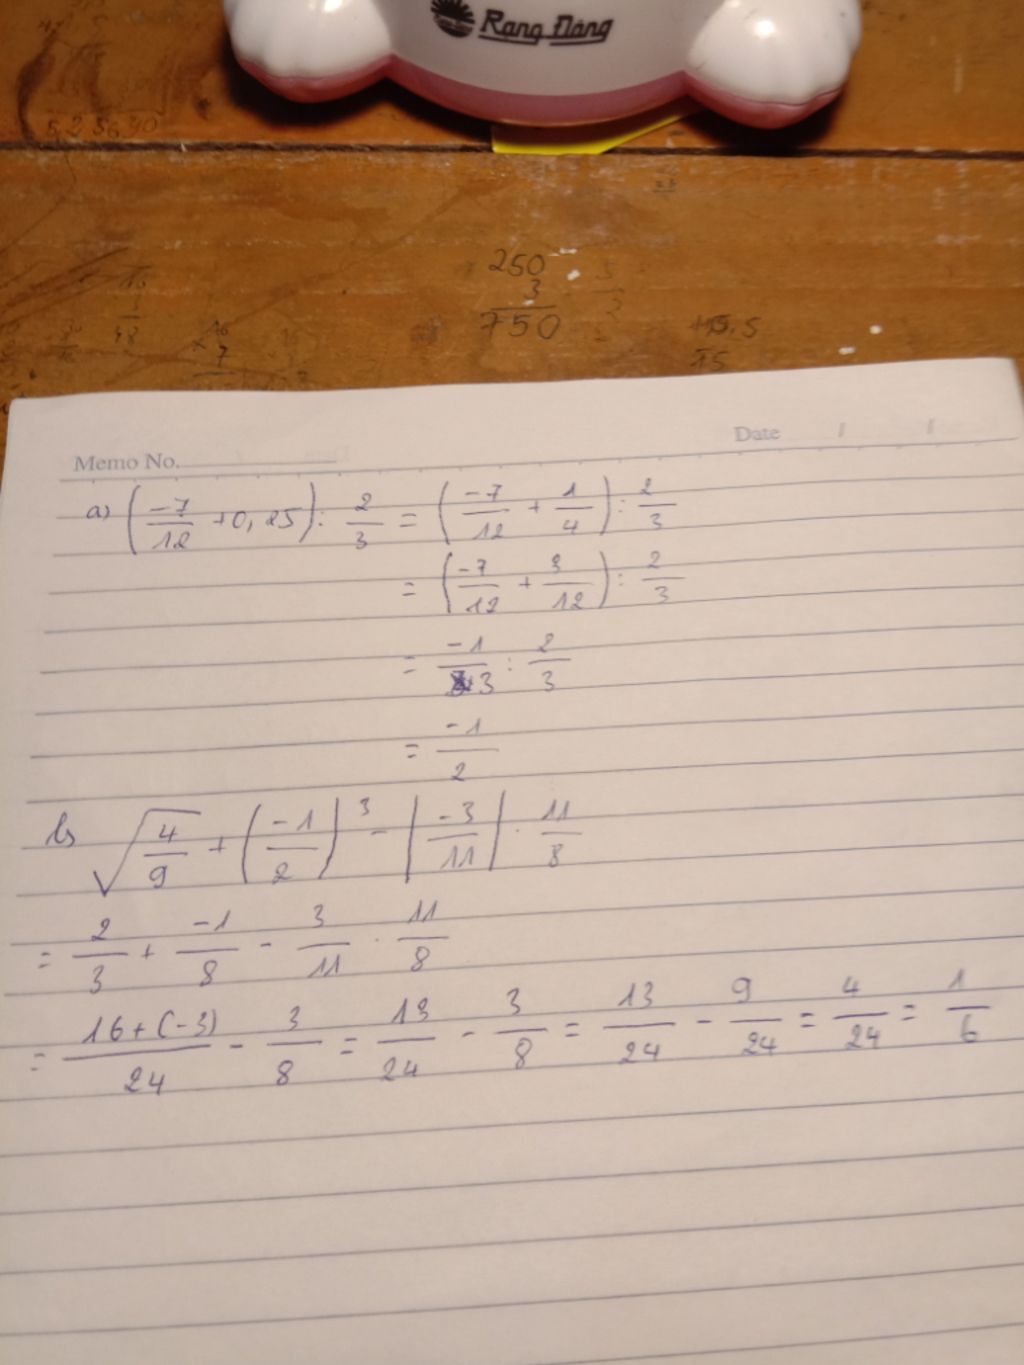 Rạng Đông
525630
250
3
750
Memo No.
Date / /
a) (-7/12 + 0,25) : 2/3 = (-7/12 + 1/4) : 2/3
= (-7/12 + 3/12) : 2/3
= -1/3 : 2/3
= -1/2
b) √(4/9) + (-1/2)³ - |-3/11| . 11/8
= 2/3 + -1/8 - 3/11 . 11/8
= 16+(-3)/24 - 3/8 = 13/24 - 3/8 = 13/24 - 9/24 = 4/24 = 1/6